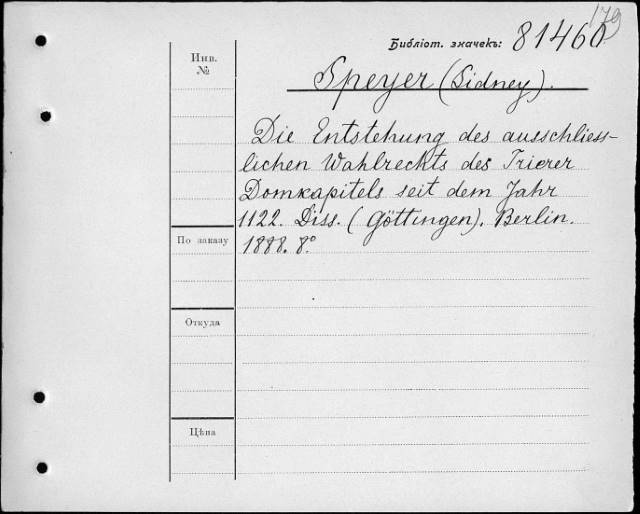 179
Библіот. значекъ: 81460
Инв.
№
Speyer (Sidney).
Die Entstehung des ausschliess-
lichen Wahlrechts des Trierer
Domkapitels seit dem Jahr
1122. Diss. (Göttingen). Berlin.
1888. 8°
По заказу
Откуда
Цѣна